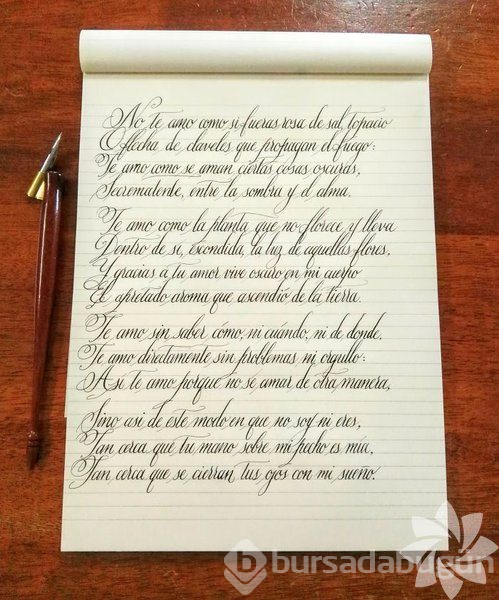 No te amo como si fueras rosa de sal, topacio
O flecha de claveles que propagan el fuego:
Te amo como se aman ciertas cosas oscuras,
Secremalente, entre la sombra y el alma.
Te amo como la planta que no florece y lleva
Dentro de si, escondida, la luz de aquellas flores,
Y gracias a tu amor vive oscuro en mi cuerpo
El apretado aroma que ascendió de la tierra.
Te amo sin saber cómo, ni cuándo, ni de donde,
Te amo diredamente sin problemas ni orgullo:
Asi te amo porque no se amar de otra manera,
Sino asi de este modo en que no soy ni eres,
Tan cerca que tu mano sobre mi pecho es mia,
Tan cerca que se cierran tus ojos con mi sueño.
bursadabugün